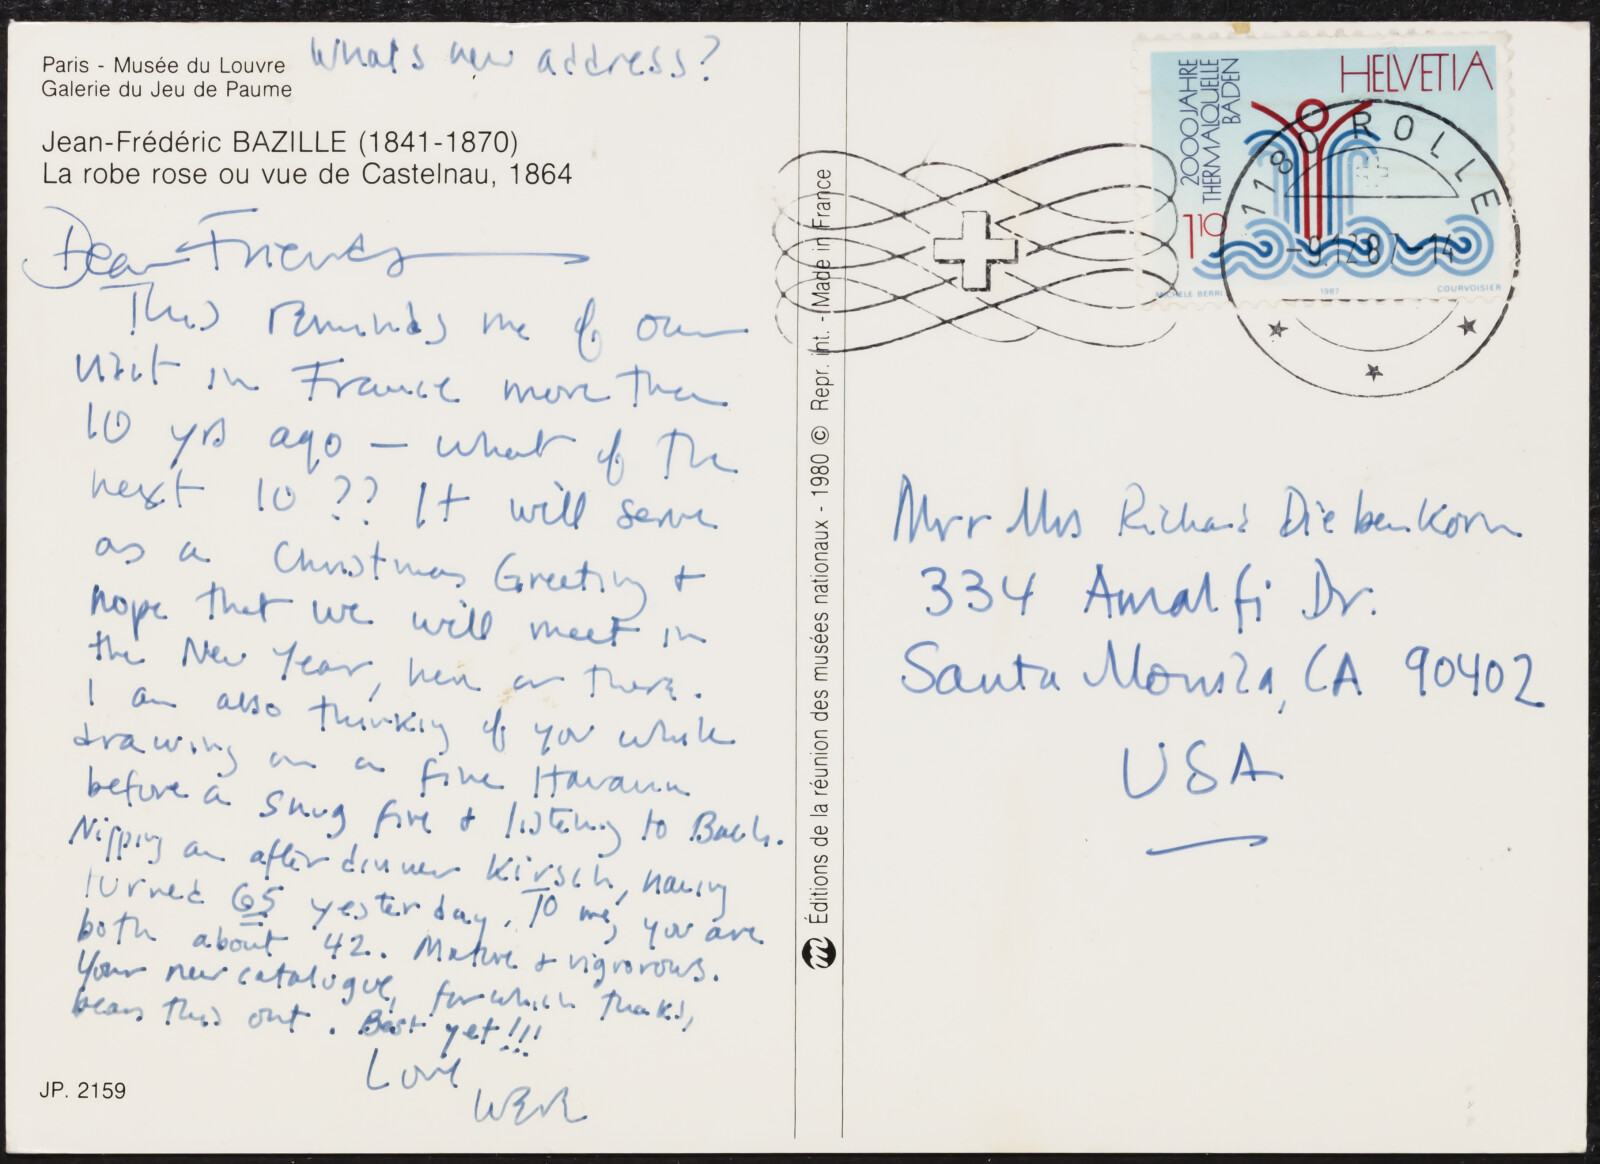 What's new address?
Paris - Musée du Louvre
Galerie du Jeu de Paume
Jean-Frédéric BAZILLE (1841-1870)
La robe rose ou vue de Castelnau, 1864
Dear Friends
This reminds me of our
visit in France more than
10 yrs ago — what of the
next 10?? It will serve
as a Christmas Greeting +
hope that we will meet in
the New Year, here or there.
I am also thinking of you while
drawing on a fine Havana
before a snug fire + listening to Bach.
Nipping an after dinner Kirsch, having
turned 65 yesterday. To me, you are
both about 42. Mature + vigorous.
Your new catalogue, for which thanks,
bears this out. Best yet!!!
Love
JP. 2159
Éditions de la réunion des musées nationaux - 1980 © Repr. int. - Made in France
HELVETIA
2000 JAHRE
THERMALQUELLE
BADEN
1180 ROLLE
110
-9.12.87-14
MICHELE BERRI
1987
COURVOISIER
Mr + Mrs Richard Diebenkorn
334 Amalfi Dr.
Santa Monica, CA 90402
USA